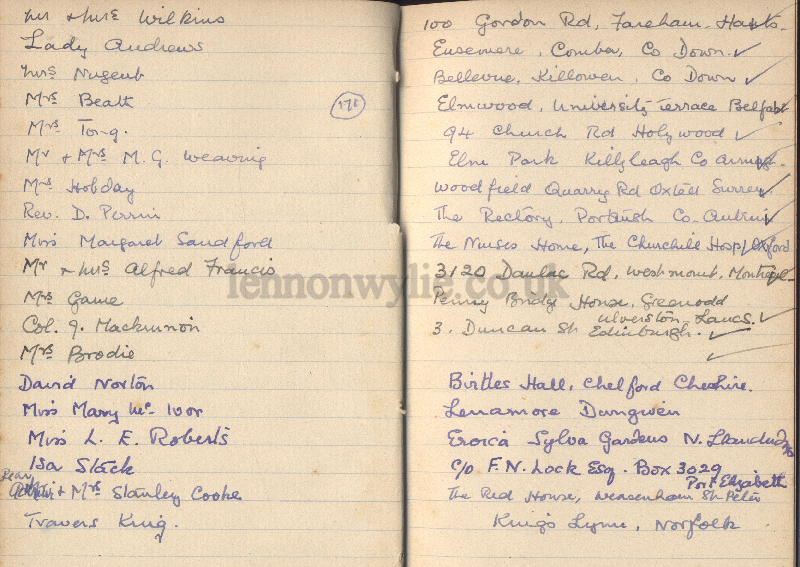 Mr & Mrs Wilkins
Lady Andrews
Mrs Nugent
Mrs Beath
171
Mrs Tong.
Mr & Mrs M. G. Weaving
Mrs Hobday
Rev. D. Perrin
Miss Margaret Sandford
Mr & Mrs Alfred Francis
Mrs Game
Col. J. Mackinnon
Mrs Brodie
David Norton
Miss Mary Mc Ivor
Miss L. E. Roberts
Isa Stack
& Mrs Stanley Cooke
Travers King.
100 Gordon Rd, Fareham. Hants.
Eusemere, Comber, Co Down.
Bellevue, Killowen, Co Down
Elmwood, University Terrace Belfast
94 Church Rd Holywood
Elm Park Killyleagh Co Armagh.
Woodfield Quarry Rd Oxted Surrey.
The Rectory, Portrush Co. Antrim
The Nurses Home, The Churchill Hosp, Oxford
3120 Daulac Rd, Westmount, Montreal
Penny Bridge House, Greenodd
Ulverston, Lancs.
3. Duncan St Edinburgh.
Birtles Hall, Chelford Cheshire.
Lenamore Dungiven
Eroica Sylva Gardens N. Llandudno
c/o F. N. Lock Esq. Box 3029
Port Elizabeth
The Red House, Weasenham St Peter
King's Lynn, Norfolk
lennonwylie.co.uk